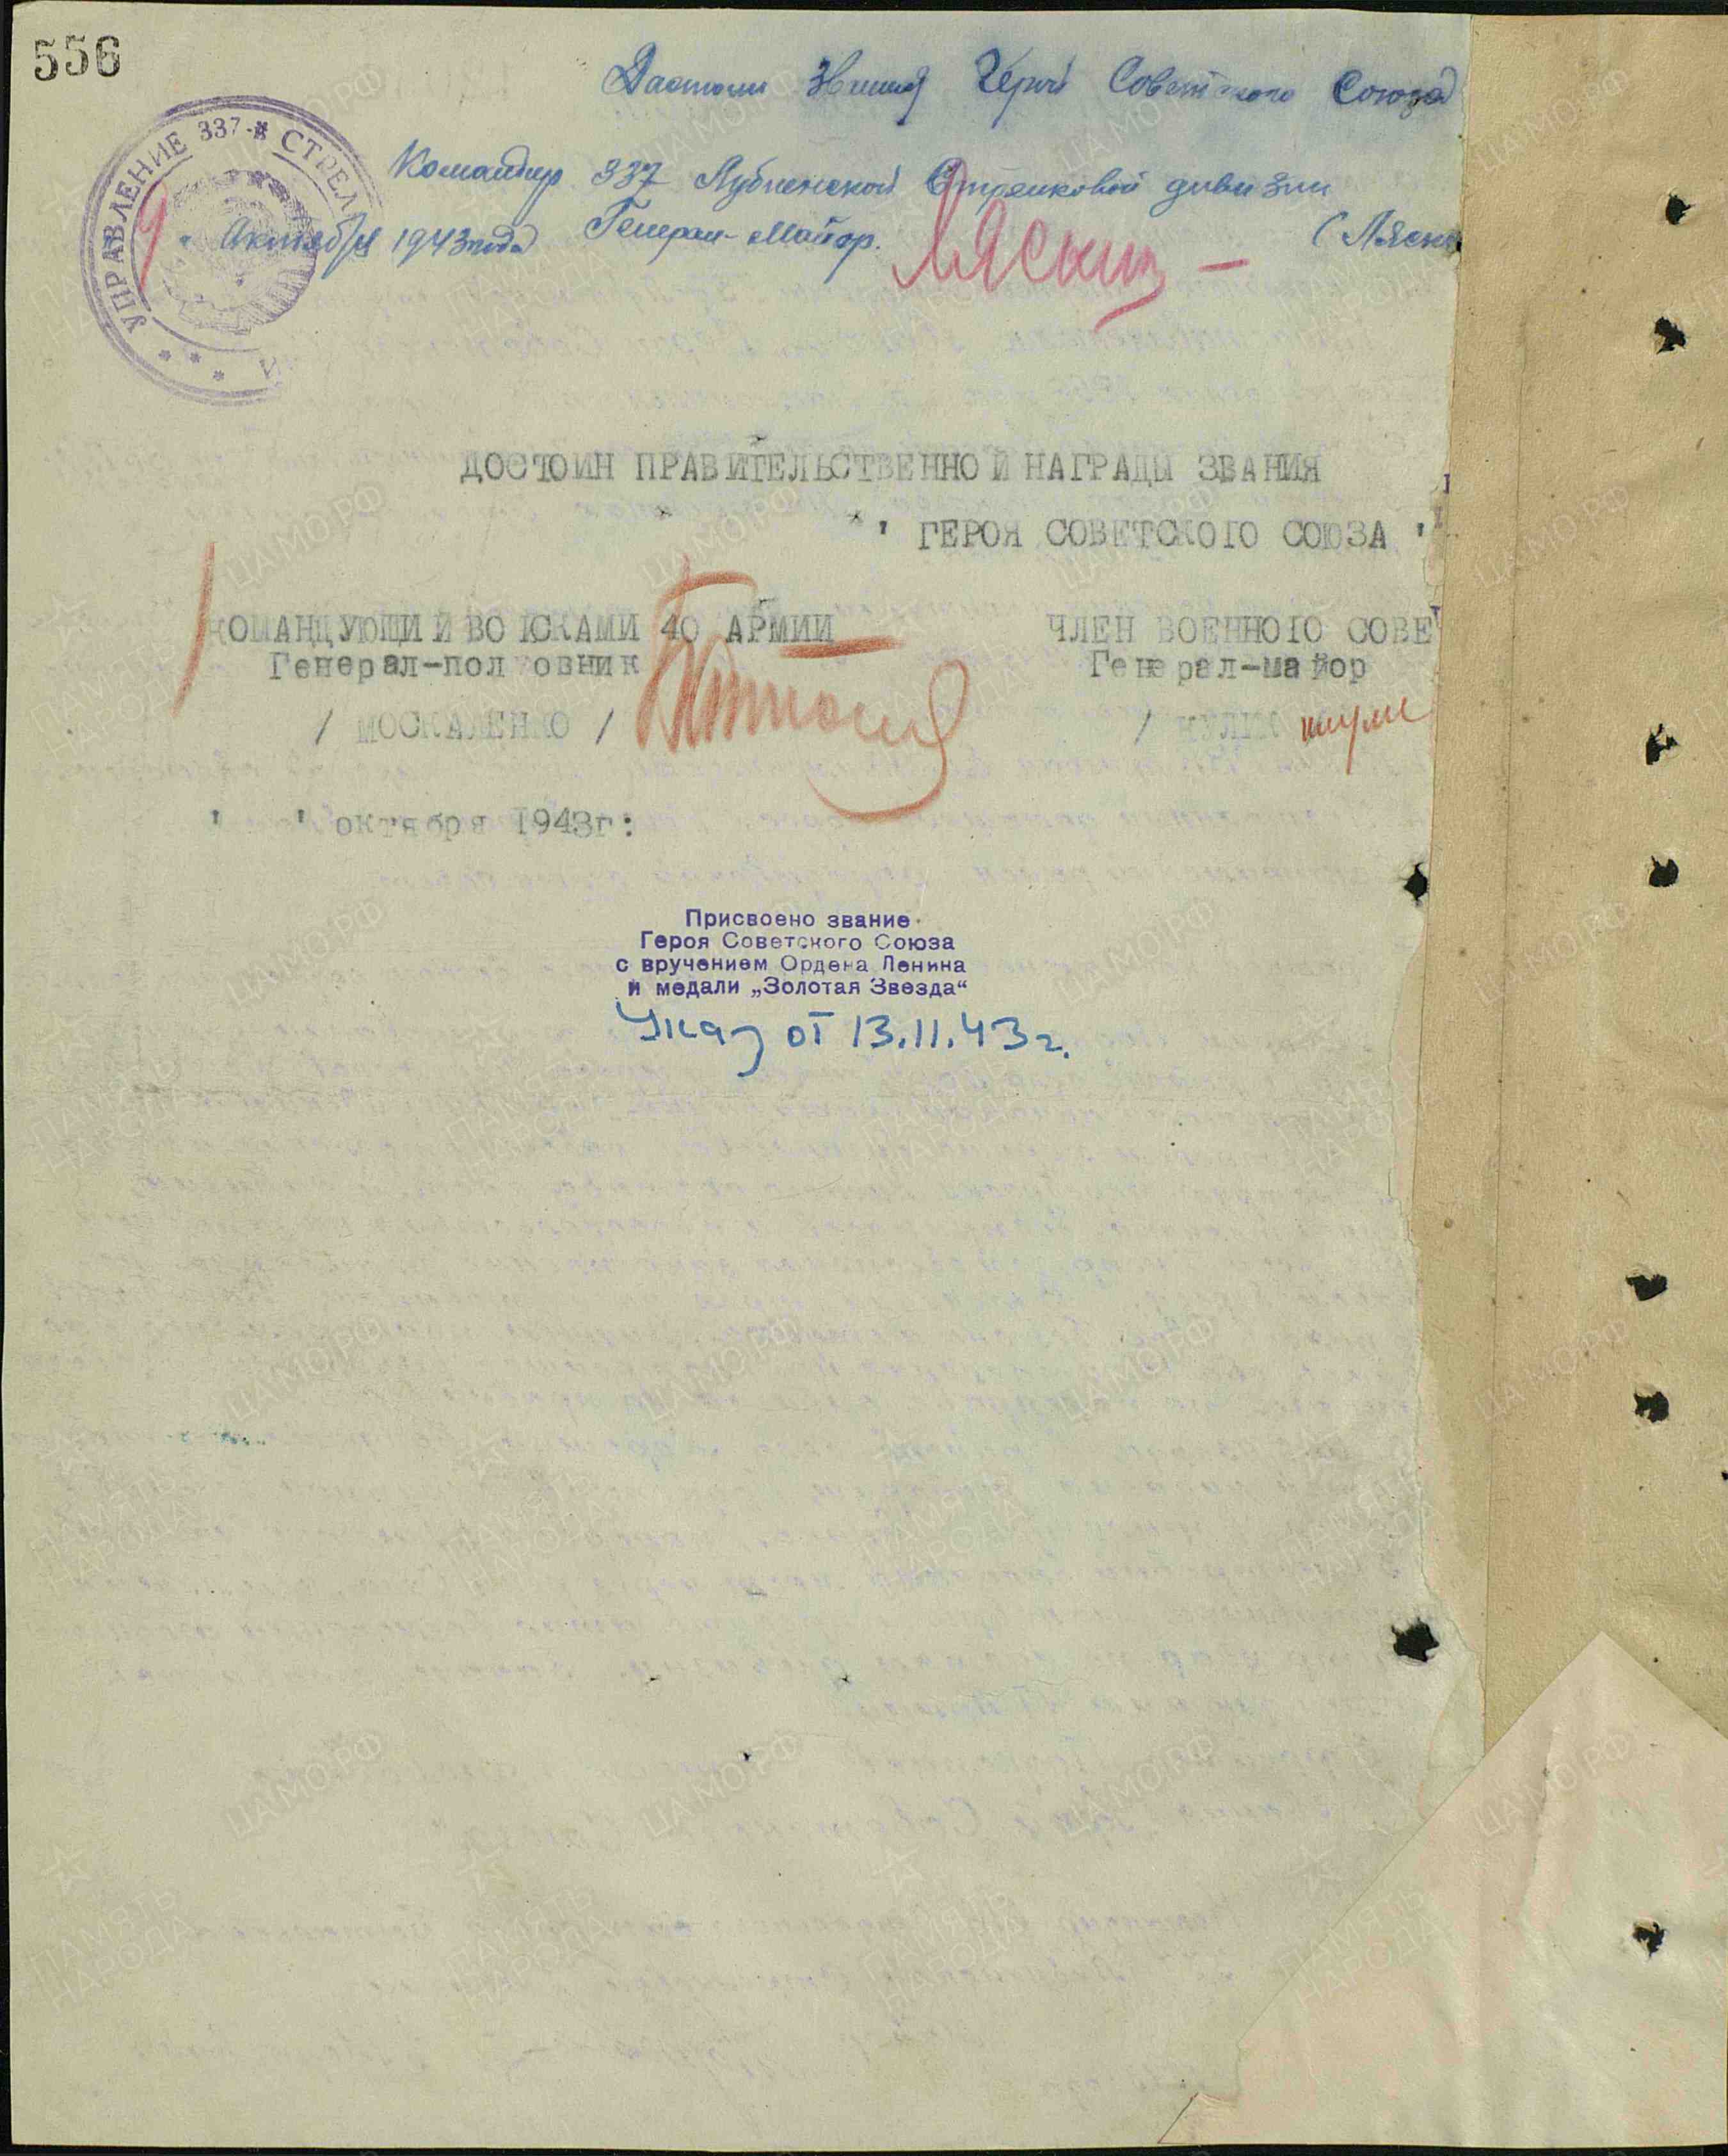 556
Достоин Звания Героя Советского Союза
УПРАВЛЕНИЕ 337-й СТРЕЛ
Командир 337 Лубненской Стрелковой дивизии
9 " Октября 1943 года Генерал-Майор. Ляскин (Ляски
ДОСТОИН ПРАВИТЕЛЬСТВЕННОЙ НАГРАДЫ ЗВАНИЯ
" ГЕРОЯ СОВЕТСКОГО СОЮЗА "
КОМАНДУЮЩИЙ ВОЙСКАМИ 40 АРМИИ ЧЛЕН ВОЕННОГО СОВЕТ
Генерал-полковник Генерал-майор
/ МОСКАЛЕНКО / /
" " октября 1943г:
Присвоено звание
Героя Советского Союза
с вручением Ордена Ленина
и медали „Золотая Звезда“
Указ от 13.11.43 г.
ЦАМО.РФ
ПАМЯТЬ
НАРОДА